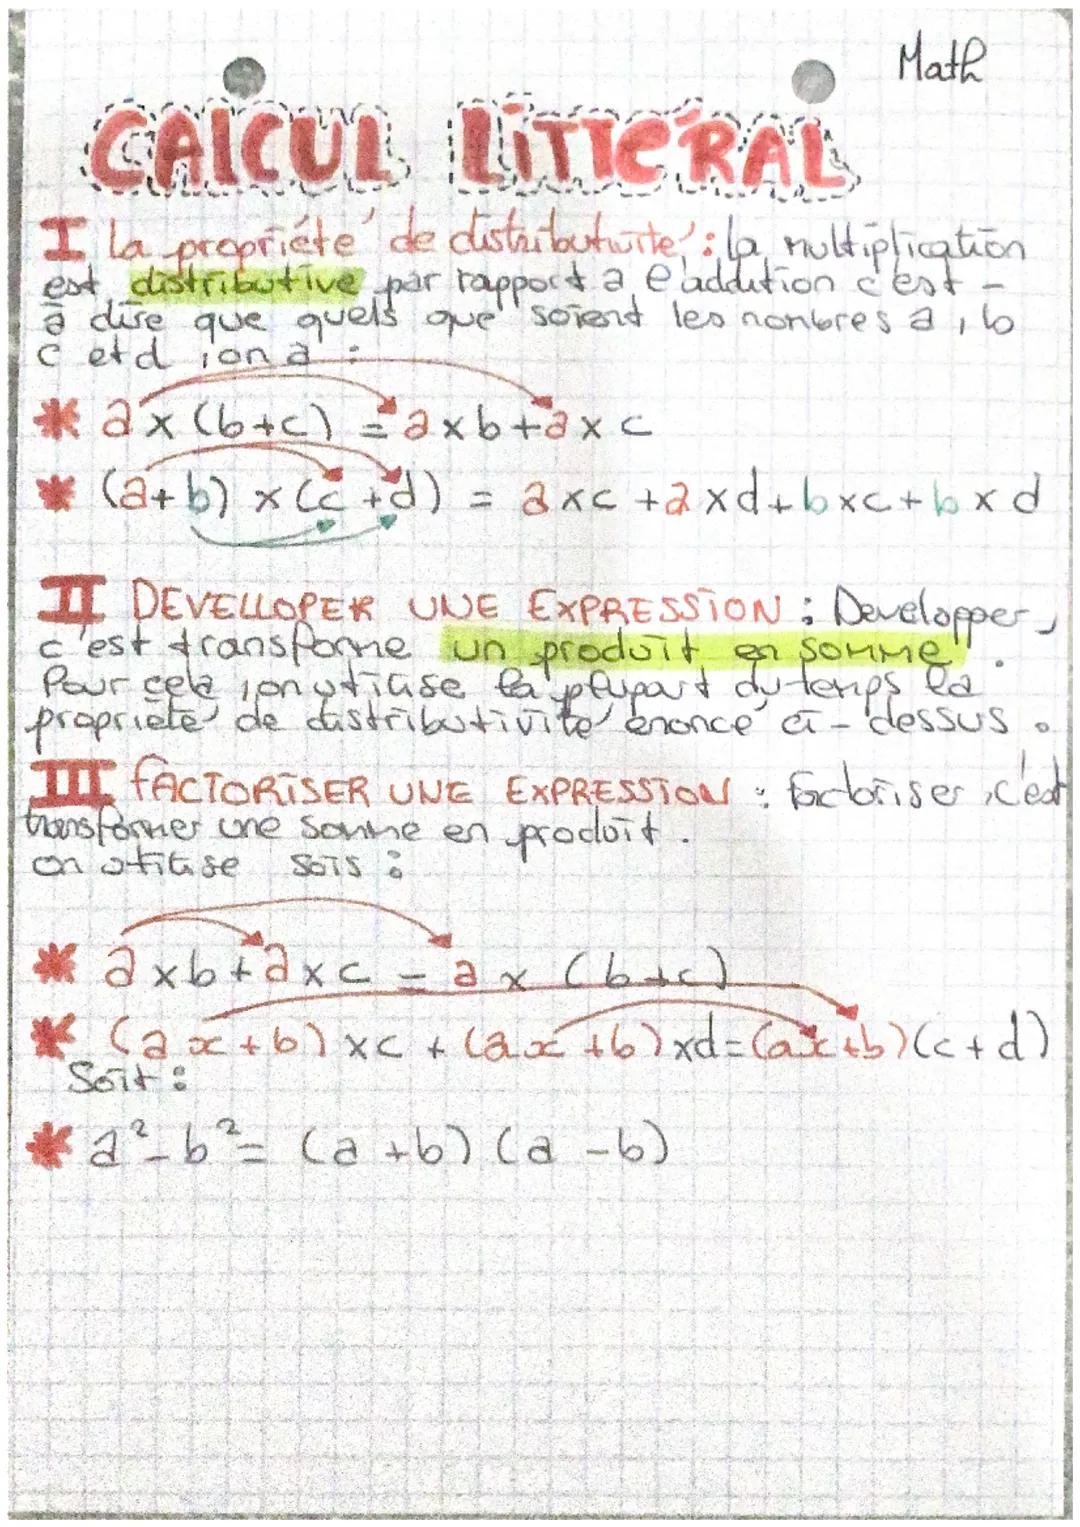 Math
CALCUL LITTÉRAL
I La propriété de distributivité : la multiplication
est distributive par rapport a l'addition c'est -
à dire que quels que soient les nombres a, b
c et d, on a :
* a x (b+c) = a x b + a x c
* (a+b) x (c+d) = a x c + a x d + b x c + b x d
II DEVELLOPER UNE EXPRESSION : Developper,
c'est transforme un produit en somme.
Pour cela, on utilise la plupart du temps la
propriété de distributivité énoncé ci-dessus.
III FACTORISER UNE EXPRESSION : factoriser, c'est
transformer une somme en produit.
on utilise sois :
* a x b + a x c = a x (b+c)
* (ax+b) x c + (ax+b) x d = (ax+b)(c+d)
Soit :
* a² - b² = (a+b) (a-b)